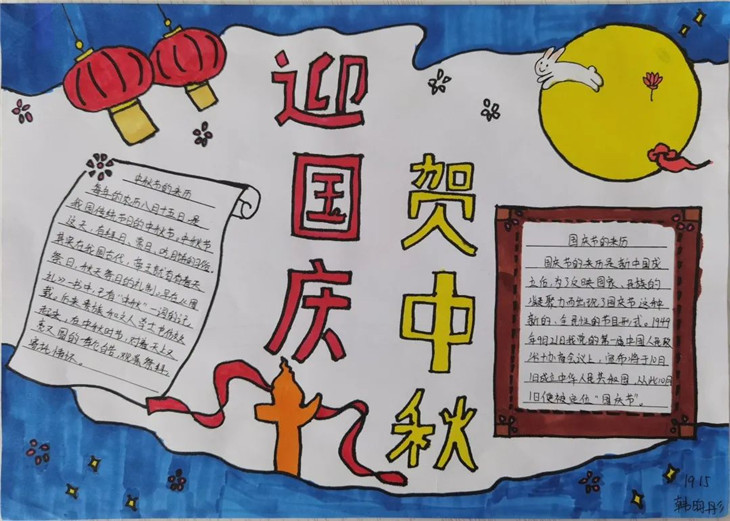 迎国庆
贺中秋
中秋节的来历
每年的农历八月十五日是
我国传统节日的中秋节。中秋节
这天,有祭月、赏月、吃月饼的习俗。
其实在我国古代,帝王就有春天
祭日,秋天祭月的礼制,早在《周
礼》一书中,已有“中秋”一词的记
载。后来贵族和文人学士也仿效
起来,在中秋时节,对着天上又
亮又圆的一轮皓月,观赏祭拜,
寄托情怀。
国庆节的来历
国庆节的来历是新中国成
立后,为了反映国家、民族的
凝聚力而出现了国庆节这种
新的、全民性的节日形式。1949
年9月21日我党的第一届中国人民政
宣布将于10月
1日成立中华人民共和国,从此10月
1日便被定位“国庆节”。
19.15